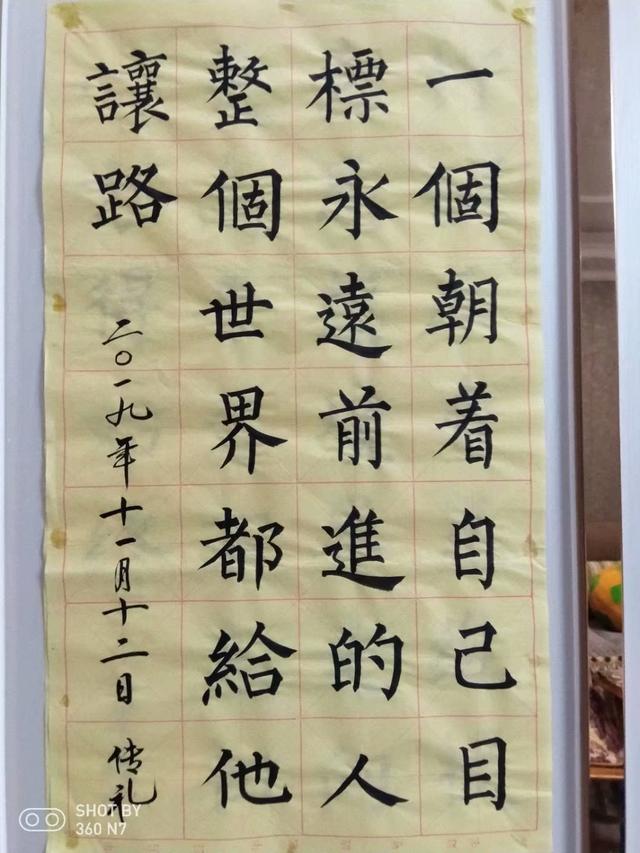 一個朝着自己目
標永遠前進的人
整個世界都給他
讓路
二〇一九年十一月十二日 传礼
SHOT BY
360 N7